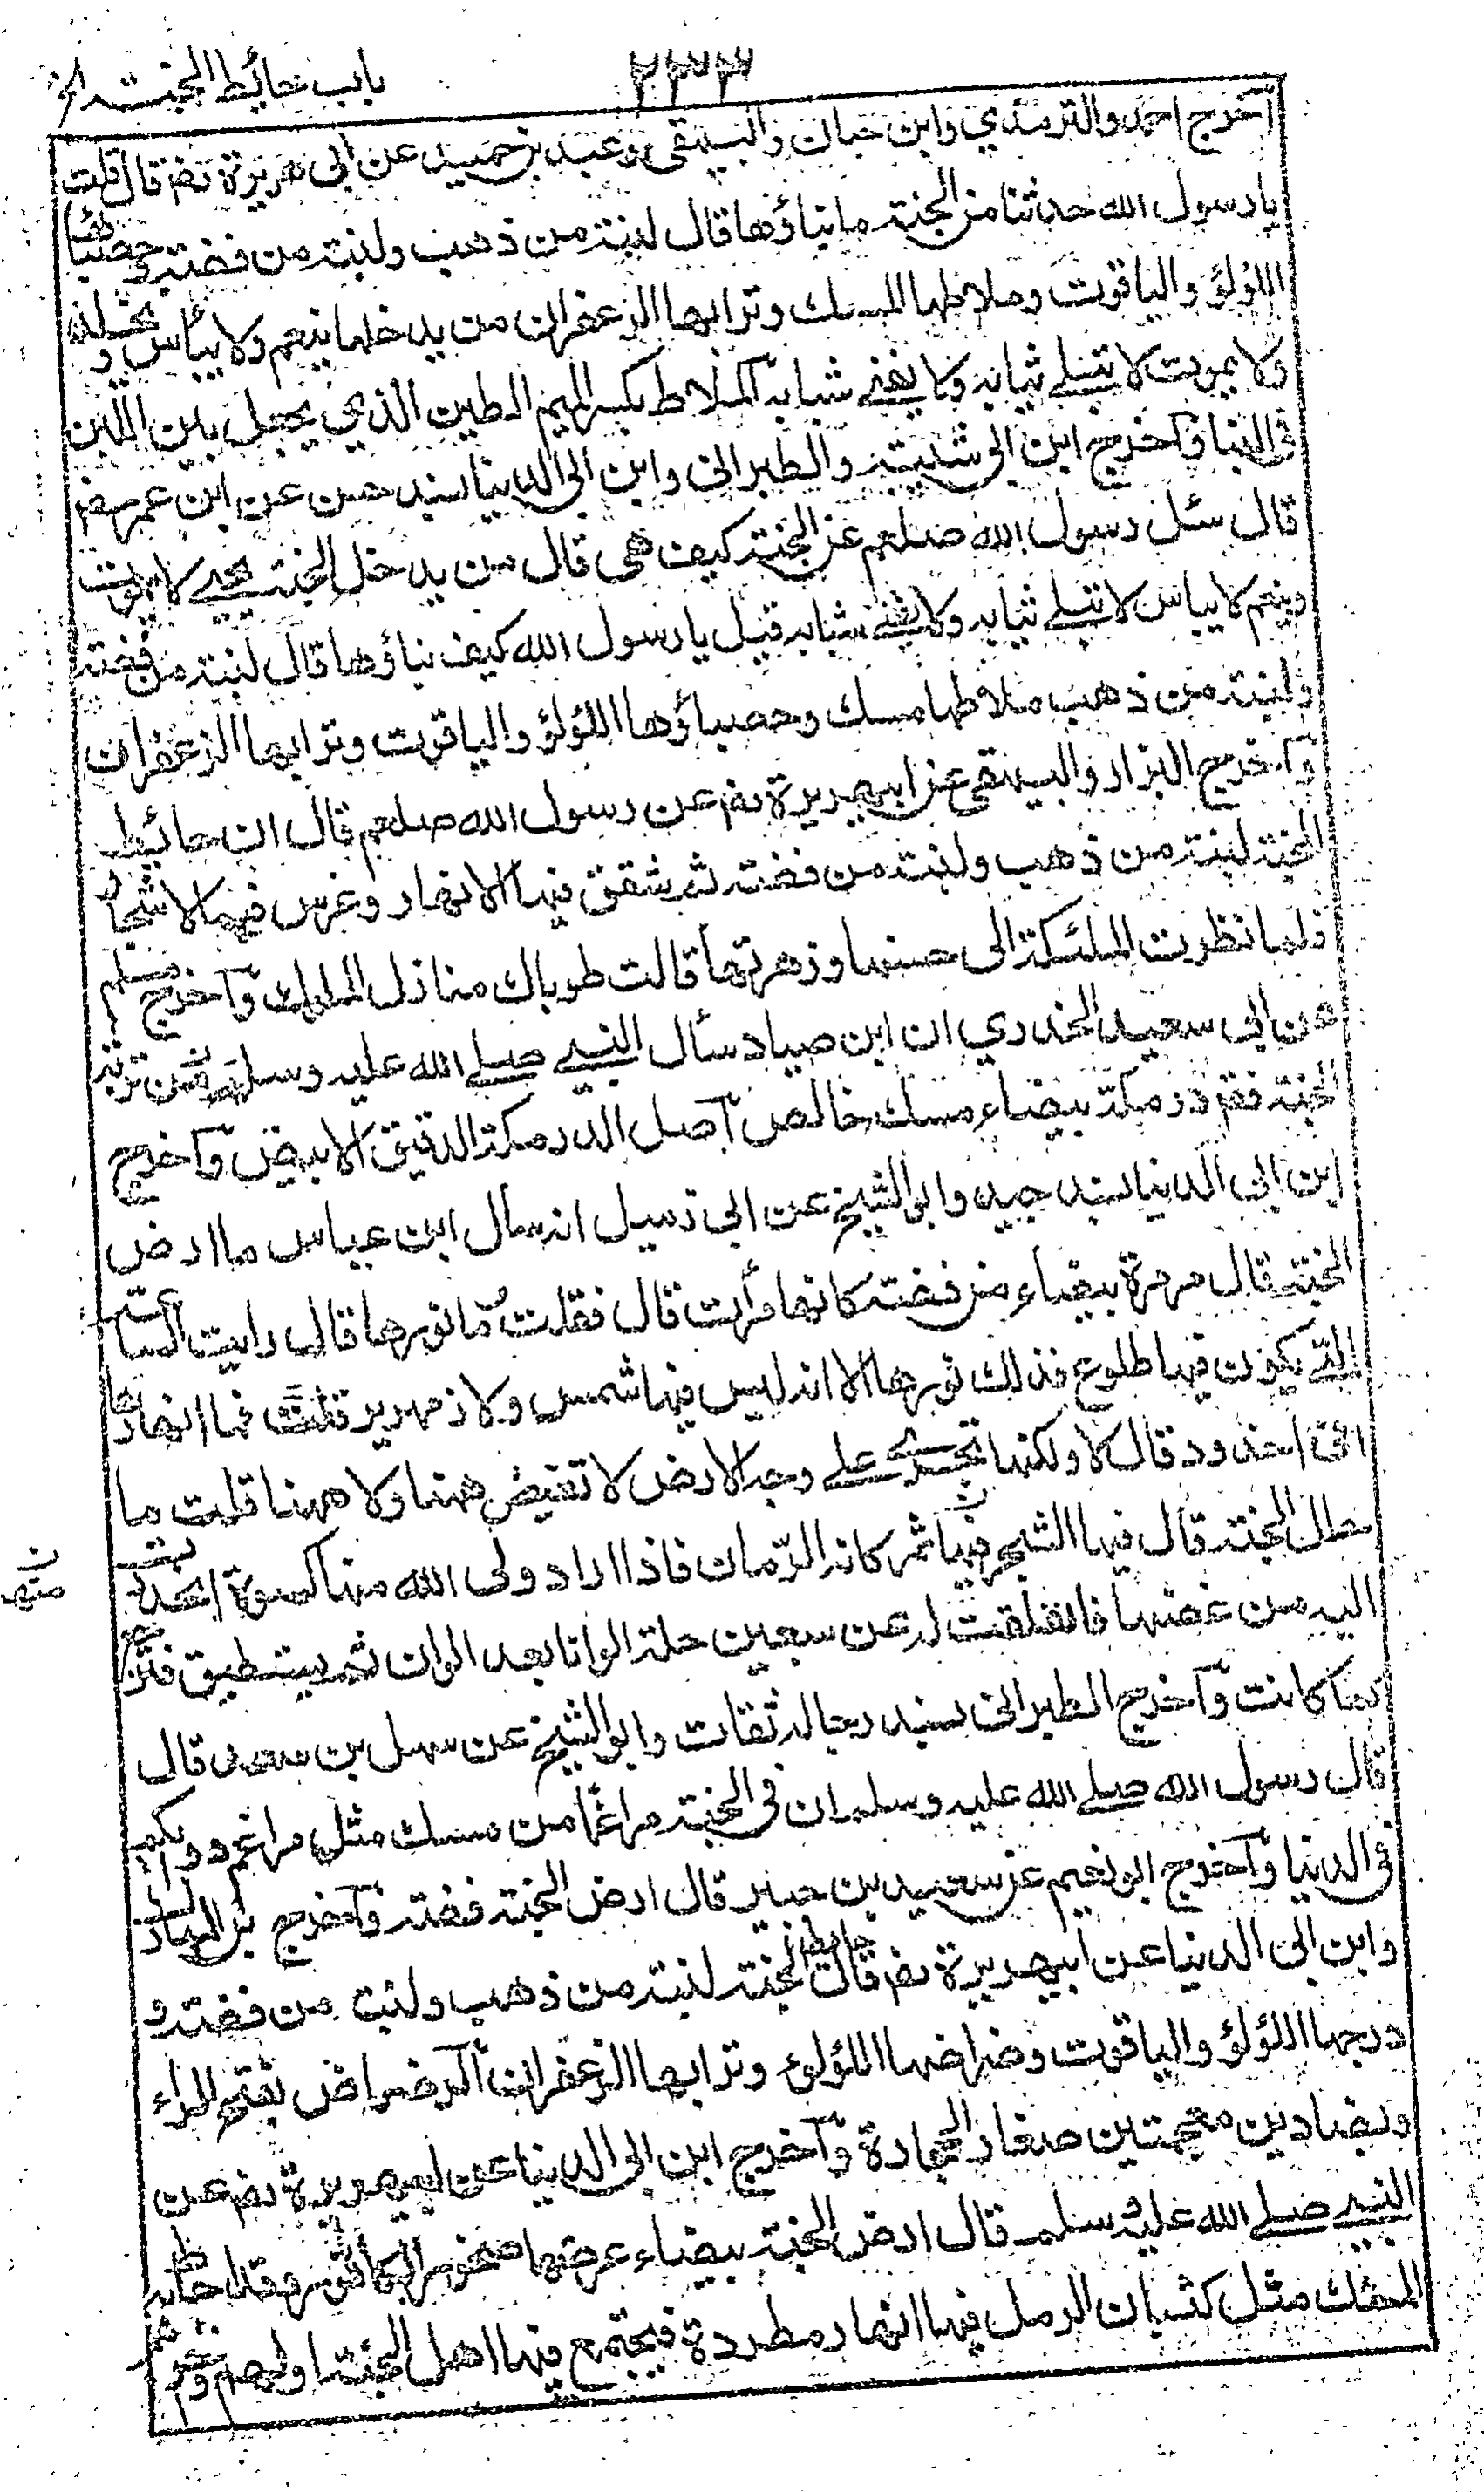 باب حائط الجنة الخ
٢٣٣
آخرج احمد والترمذي وابن حبان والبيهقى وعبد بن حميد عن ابى هريرة رض قال قلت
يا رسول الله حدثنا من الجنة ما بناؤها قال لبنة من ذهب ولبنة من فضة وحصباؤها
اللؤلؤ والياقوت وملاطها المسك وترابها الزعفران من يدخلها ينعم ولا ييأس ويخلد
ولا يموت لا تبلے ثيابه ولا يفنے شبابه آلملاط بكسر الميم الطين الذي يجعل بين اللبن
فى البنا وآخرج ابن ابى شيبة والطبرانى وابن ابى الدنيا بسند حسن عن ابن عمر رض
قال سئل رسول الله صلعم عن الجنة كيف هى قال من يدخل الجنة يحيے لا يموت
وينعم لا يباس لا تبلے ثيابه ولا يفنے شبابه قيل يا رسول الله كيف بناؤها قال لبنة من فضة
ولبنة من ذهب ملاطها مسك وحصباؤها اللؤلؤ والياقوت وترابها الزعفران
وآخرج البزار والبيهقى عن ابيهريرة رض عن رسول الله صلعم قال ان حائط
الجنة لبنة من ذهب ولبنة من فضة ثم شقق فيها الانهار وغرس فيها الاشجار
فلما نظرت الملئكة الى حسنها وزهرتها قالت طوباك منازل الملوك وآخرج مسلم
عن ابى سعيد الخدري ان ابن صياد سأل النبي صلے الله عليه وسلم عن تربة
الجنة فقر درمكة بيضاء مسك خالص آصل الدرمكة الدقيق الابيض وآخرج
ابن ابى الدنيا بسند جيد وابو الشيخ عن ابى زميل انه سأل ابن عباس ما ارض
الجنة قال مرمرة بيضاء من فضة كانها مرأت قال فقلت ما نورها قال رايت الساعة
التے يكون فيها طلوع فذلك نورها الا انه ليس فيها شمس ولا زمهرير قلت فما انهارها
افى اخدود قال لا ولكنها تجرے على وجه الارض لا تفيض ههنا ولا ههنا قلت ما
حلل الجنة قال فيها الشجر فيها ثمر كانه الرمان فاذا اراد ولى الله منها كسوة انحدرت
اليه من غصنها فانفلقت له عن سبعين حلة الوانا بعد الوان ثم يستطبق فترجع
كما كانت وآخرج الطبرانى بسند رجاله ثقات وابو الشيخ عن سهل بن سعد قال
قال رسول الله صلے الله عليه وسلم ان فى الجنة مراغا من مسك مثل مراغ دوابكم
فى الدنيا وآخرج ابو نعيم عن سعيد بن جبير قال ارض الجنة فضة وآخرج ابن المبارك
وابن ابى الدنيا عن ابيهريرة رض قال حائط الجنة لبنة من ذهب ولبنة من فضة و
درجها اللؤلؤ والياقوت ورضراضها اللؤلوء وترابها الزعفران آلرضراض بفتح الراء
وبضادين معجمتين صغار الحجارة وآخرج ابن ابى الدنيا عن ابيهريرة رض عن
النبي صلے الله عليه وسلم قال ارض الجنة بيضاء عرضها صخور الكافور وقد احاط به
المسك مثل كثبان الرمل فيها انهار مطردة فيجتمع فيها اهل الجنة اولهم وآخرهم